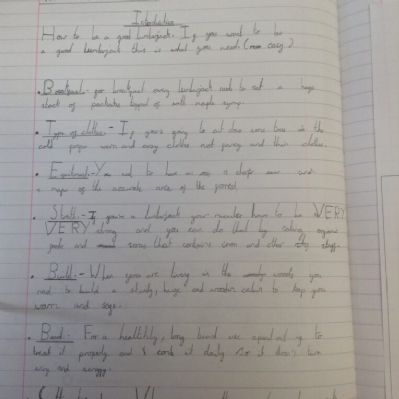 Introduction
How to be a good lumberjack. If you want to be
a good lumberjack this is what you need. (very easy.)
• Breakfast:- for breakfast every lumberjack needs to eat a huge
stack of pancakes topped of with maple syrup.
• Type of clothes:- If your going to cut down some trees in the
cold proper warm and cosy clothes not and thin clothes.
• Equipment:- You need to have an axe a sharp saw and
a map of the accurate area of the forest.
• Stealth:- If you're a lumberjack your muscles have to be VERY
VERY strong and you can do that by eating organic
foods and that contains iron and other stuff.
• Build:- When you are living in the woods you
need to build a sturdy, huge and wooden cabin to keep you
warm and safe.
• Beard:- For a healthily, long beard use to
treat it properly and comb it daily so it doesn't turn
and scruffy.